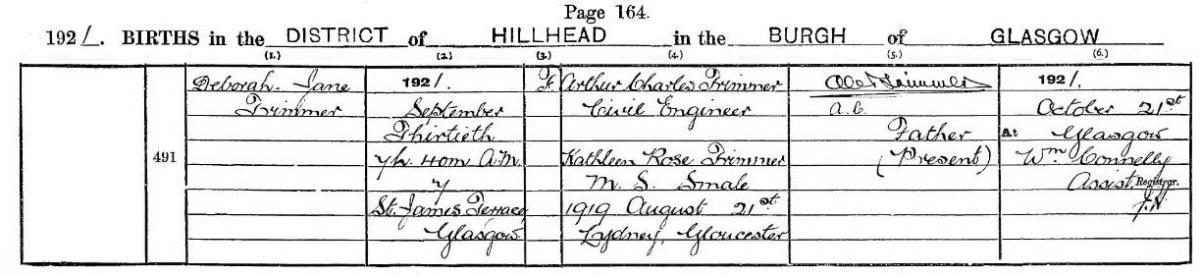 Page 164.
1921. BIRTHS in the DISTRICT of HILLHEAD in the BURGH of GLASGOW
(1.) (2.) (3.) (4.) (5.) (6.)
491
Deborah Jane
Trimmer
1921.
September
Thirtieth
7h. 40m A.M.
7
St. James Terrace
Glasgow
F.
Arthur Charles Trimmer
Civil Engineer
Kathleen Rose Trimmer
M.S. Smale
1919 August 21st
Lydney, Gloucester
Trimmer
A.C.
Father
(Present)
1921.
October 21st
At Glasgow
Wm Connelly
Assist. Registrar.